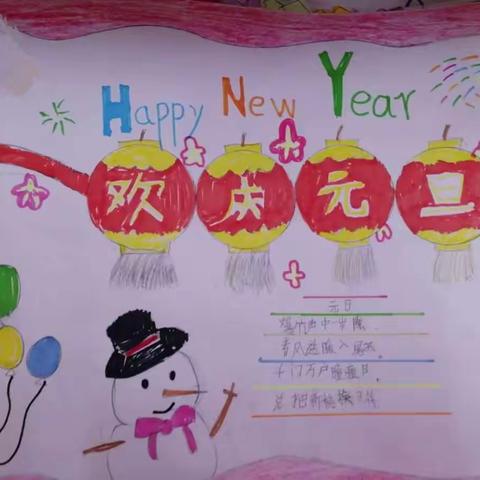 Happy New Year
欢庆元旦
元日
爆竹声中一岁除,
春风送暖入屠苏。
千门万户曈曈日,
总把新桃换旧符